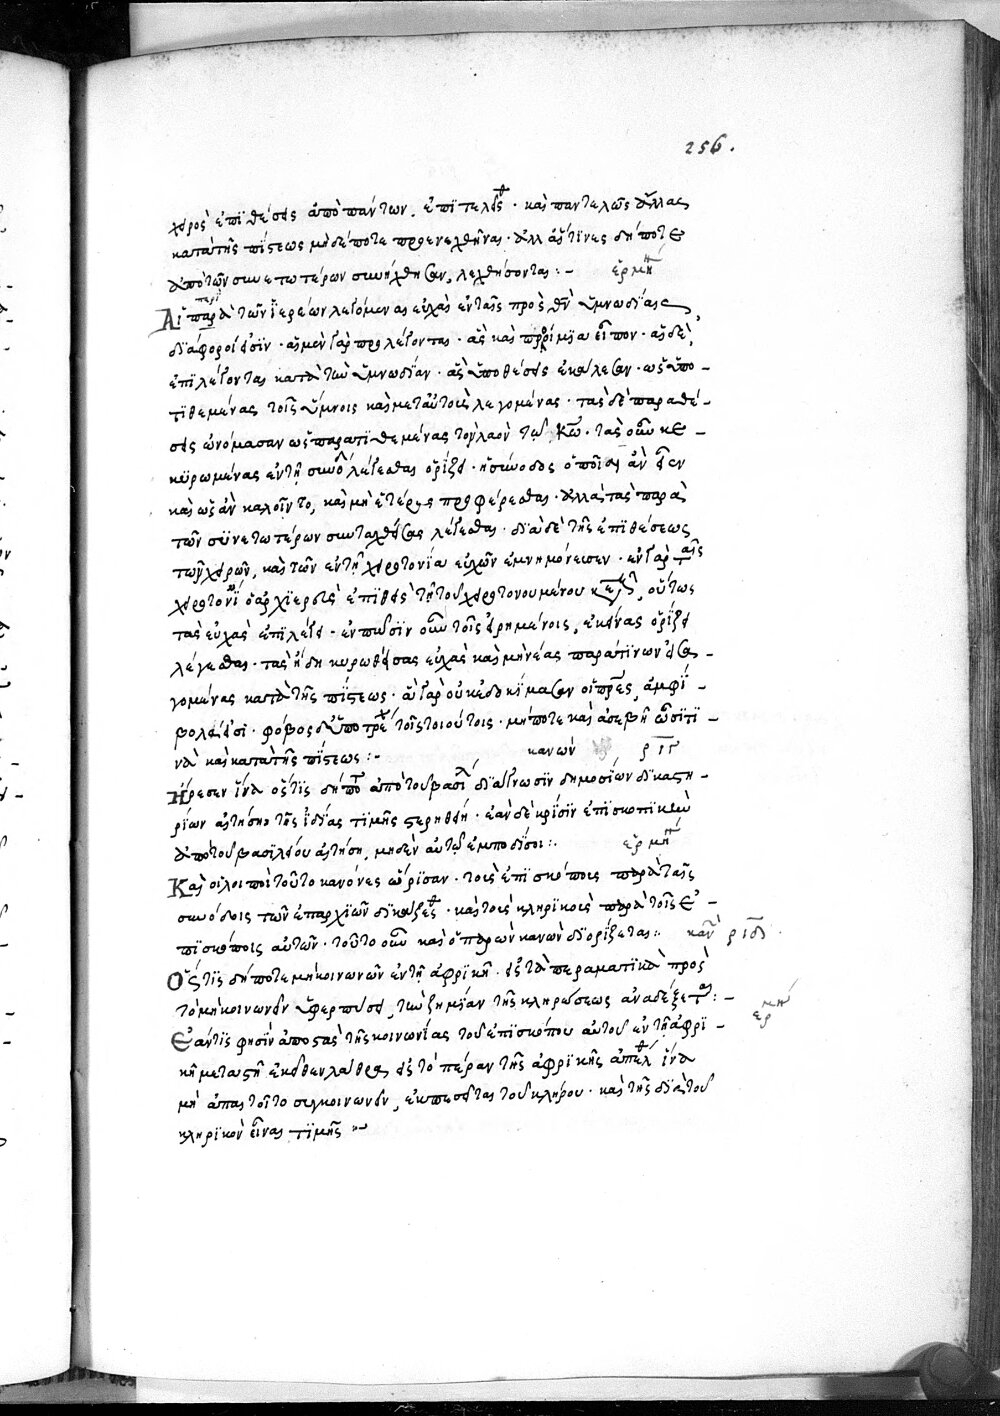 256.
χειρὸς ἐπιθέσεις ἀπὸ πάντων ἐπιτελεῖσθ · καὶ παντελῶς ἄλλας
κατὰ τῆς πίστεως μηδέποτε προενεχθῆναι · ἀλλ αἵτινες δήποτε
ἀπὸ τῶν συνετωτέρων συνήχθησαν, λεχθήσονται :- ἑρμη
Αἱ παρὰ τῶν ἱερέων λεγόμεναι εὐχαὶ ἐν ταῖς πρὸς θν ὑμνωδίαις,
διάφοροί εἰσϊν · αἱ μὲν γὰρ προλέγονται · ἃς καὶ προοίμια εἶπον · αἱ δὲ,
ἐπιλέγονται κατὰ τὴν ὑμνωδίαν · ἃς ὑποθέσεις ἐκάλεσαν · ὡς ὑπο-
τιθεμένας τοῖς ὕμνοις καὶ μετ αὐτοὺς λεγομένας · τὰς δὲ παραθέ-
σεις ὠνόμασαν ὡς παρατιθεμένας τὸν λαὸν τῷ κω · τὰς οὖν κε-
κυρωμένας ἐν τῇ συνόδ λέγεσθαι ὁρίζει · ἡ σύνοδος ὁποῖαι ἂν εἶεν
καὶ ὡς ἂν καλοῖντο, καὶ μὴ ἑτέρας προφέρεσθαι · ἀλλὰ τὰς παρὰ
τῶν συνετωτέρων συνταχθείσας λέγεσθαι · διὰ δὲ τῆς ἐπιθέσεως
τῶν χειρῶν, καὶ τῶν ἐν τῇ χειροτονία εὐχῶν ἐμνημόνευσεν · ἐν γὰρ ταῖς
χειροτονί ὁ ἀρχιερεὺς ἐπιθεὶς τῇ τοῦ χειροτονουμένου κεφ, οὕτως
τὰς εὐχὰς ἐπιλέγει · ἐν πᾶσιν οὖν τοῖς εἰρημένοις, ἐκείνας ὁρίζει
λέγεσθαι · τὰς ἤδη κυρωθείσας εὐχὰς καὶ μὴ νέας παρά τινων εἰσα-
γομένας κατὰ τῆς πίστεως · ἃς γὰρ οὐκ ἐδοκίμασαν οἱ πρες, ἀμφί-
βολαί εἰσι · φόβος δὲ ὕποπτ τοῖς τοιούτοις · μήποτε καὶ ἀσεβῆ ὦσι τι-
νὰ καὶ κατὰ τῆς πίστεως :- κανὼν ριγ
Ἤρεσεν ἵνα ὅστις δήπο ἀπὸ τοῦ βασιλ διάγνωσιν δημοσίων δικαστη-
ρίων αἰτήσῃ τῆς ἰδίας τιμῆς στερηθῇ · ἐὰν δὲ κρίσϊν ἐπισκοπικὴν
ἀπὸ τοῦ βασιλέως αἰτήσῃ, μηδὲν αὐτῷ ἐμποδίσοι :. ἑρμη
Καὶ οἱ λοιποὶ τοῦτο κανόνες ὥρισαν · τοὺς ἐπισκόπους παρὰ ταῖς
συνόδοις τῶν ἐπαρχιῶν δικάζεσθ · καὶ τοὺς κληρικοὺς παρὰ τοῖς ἐ-
πισκόποις αὐτῶν · τοῦτο οὖν καὶ ὁ παρὼν κανὼν διορίζεται :. καν ριδ.
Ὅστις δήποτε μὴ κοινωνῶν ἐν τῇ ἀφρικῆ · εἰς τὰ περαματικὰ πρὸς
τὸ μὴ κοινωνεῖν ὑφερπύσει, τὴν ζημίαν τῆς κληρώσεως ἀναδέξετ :- ἑρμη
Ἐάν τις φησὶν ἀποστὰς τῆς κοινωνίας τοῦ ἐπισκόπου αὐτοῦ ἐν τῇ ἀφρι-
κῇ μεταστῆ ἐκεῖθεν λάθρα εἰς τὸ πέραν τῆς ἀφρικῆς ἀπελθ ἵνα
μὴ ἅπας τοῦτο συγκοινωνεῖν, ἐκπεσεῖται τοῦ κλήρου · καὶ τῆς διὰ τοῦ
κληρικὸν εἶναι τιμῆς :~